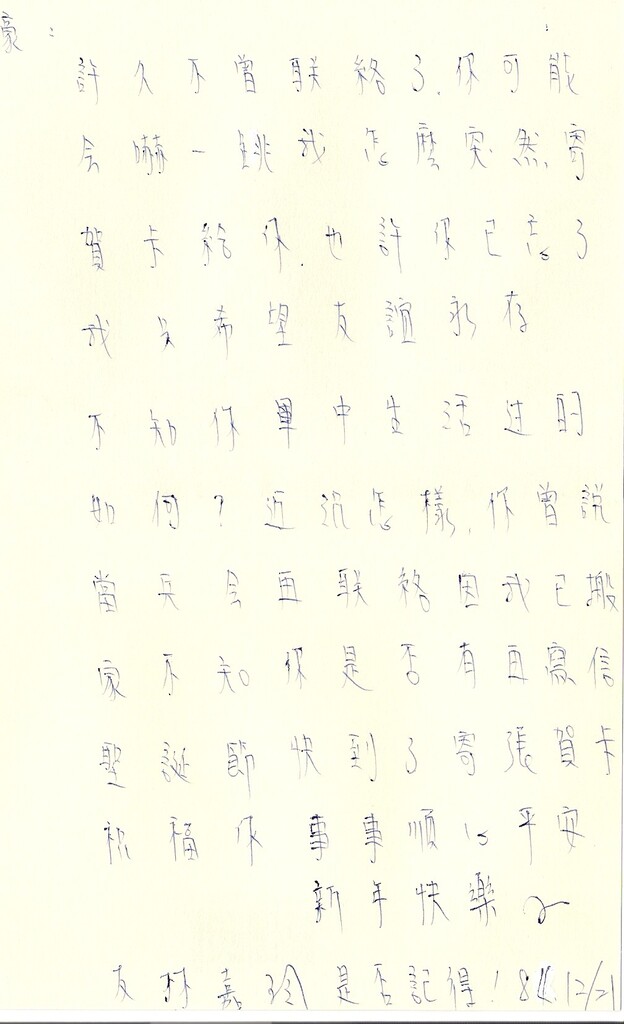 豪：
許久不曾联絡了.你可能
会嚇一跳我怎麼突然寄
賀卡給你.也許你已忘了
我只希望友誼永存
不知你單中生活过的
如何？近況怎樣.你曾說
當兵会再联絡因我已搬
家不知你是否有再寫信
聖誕節快到了寄張賀卡
祝福你事事順心平安
新年快樂
友林嘉玲是否記得！8 .12/21